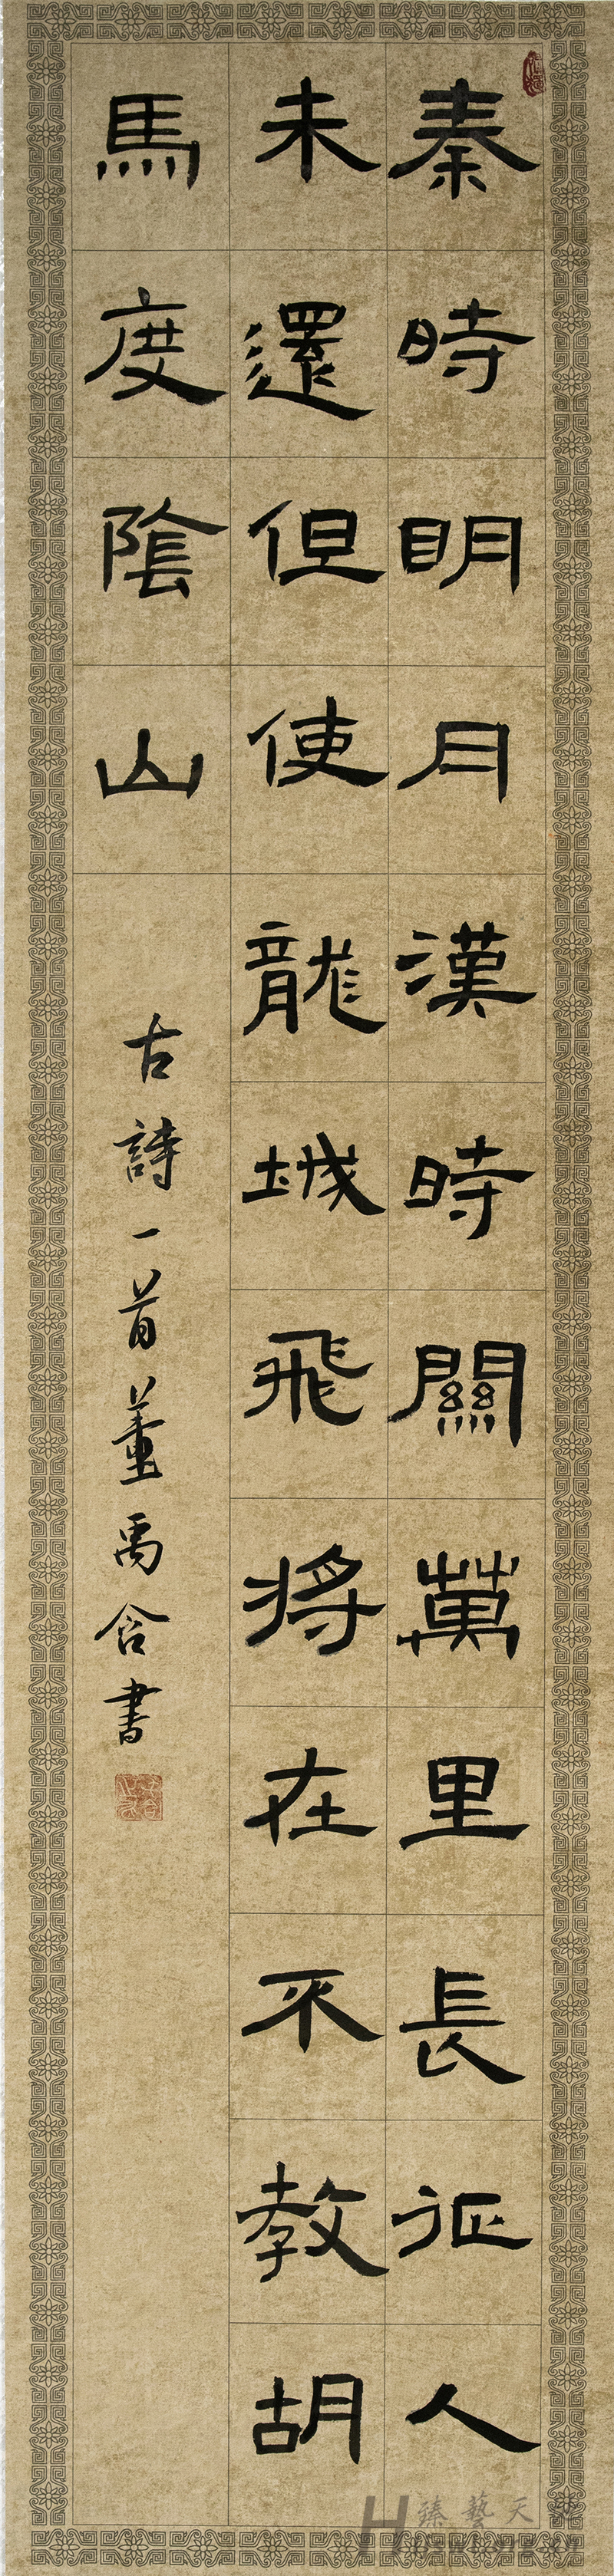 秦時明月漢時關萬里長征人
未還但使龍城飛將在不教胡
馬度陰山
古詩一首董禹含書
臻藝天